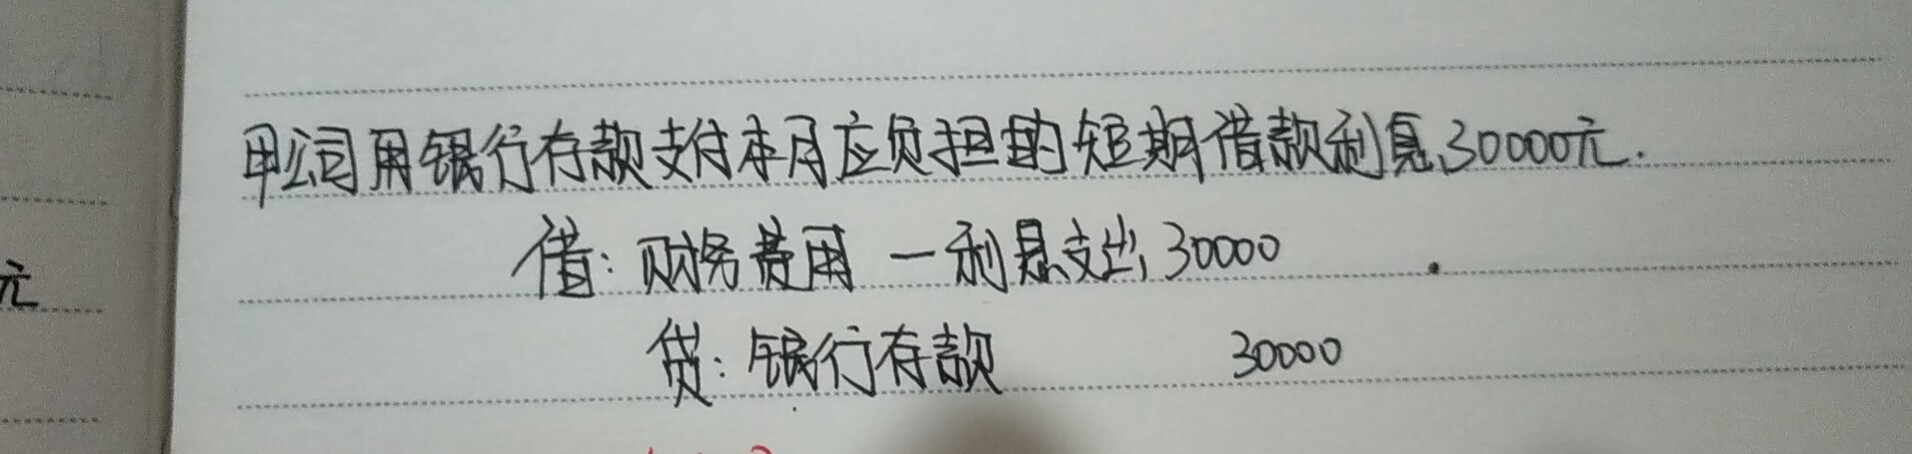 甲公司用银行存款支付本月应负担的短期借款利息30000元.
借: 财务费用 一利息支出 30000
贷: 银行存款 30000
元